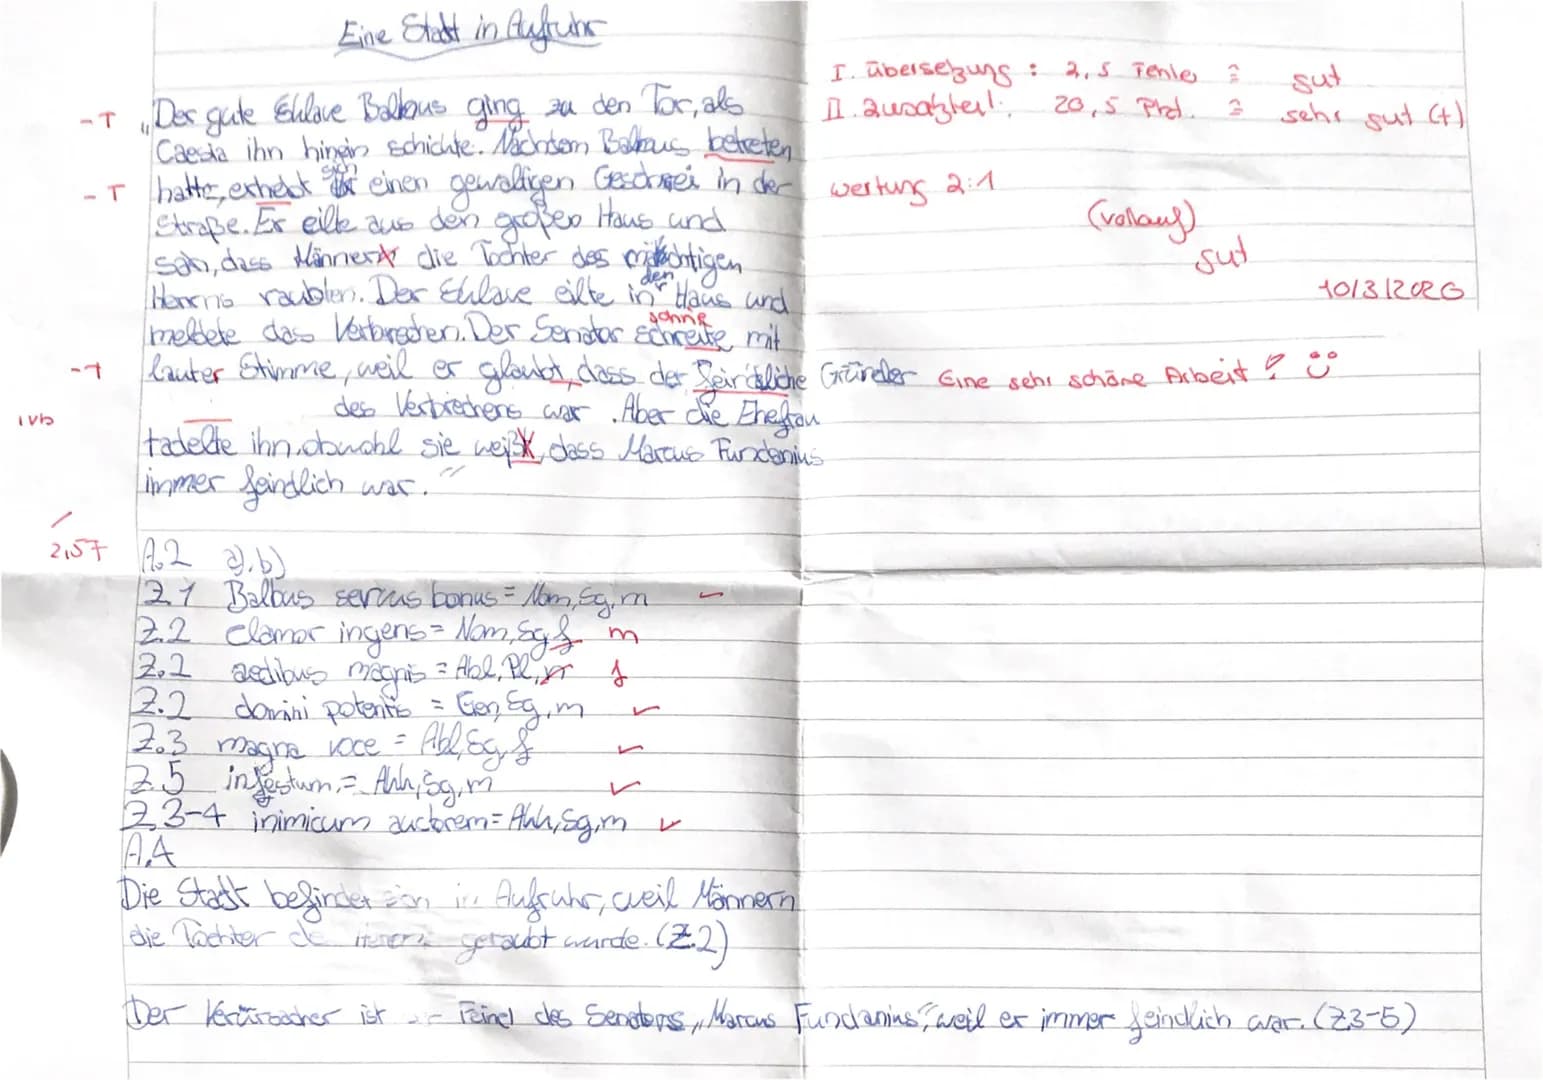 Eine Stadt in Aufruhr
I. übersetzung : 2,5 Fehler ≙ gut
II. zusatzteil: 20,5 Pkt. ≙ sehr gut (+)
wertung 2:1
(vollauf)
gut
10/3/2026
-T „Der gute Sklave Balbus ging zu den Tor, als
Caesia ihn hinein schickte. Nachdem Balbus betreten
-T hatte, erhebt sich einen gewaltigen Geschrei in der
Straße. Er eilte aus den großen Haus und
sah, dass Männer die Tochter des mächtigen
Herrns raubten. Der Sklave eilte in den Haus und
meldete das Verbrechen. Der Senator schreite mit
schrie
-T lauter Stimme, weil er glaubt, dass der feindliche Gründer Eine sehr schöne Arbeit!
des Verbrechens war. Aber die Ehefrau
1Vb tadelte ihn, obwohl sie weiß, dass Marcus Fundanius
immer feindlich war."
2,5F
A.2 a), b)
Z.1 Balbus servus bonus = Nom, Sg, m
Z.2 clamor ingens = Nom, Sg, f m
Z.2 aedibus magnis = Abl, Pl, f
Z.2 domini potentis = Gen, Sg, m
Z.3 magna voce = Abl, Sg, f
Z.5 infestum = Akk, Sg, m
Z.3-4 inimicum auctorem = Akk, Sg, m
A.4
Die Stadt befindet sich in Aufruhr, weil Männern
die Tochter geraubt wurde. (Z.2)
Der Verursacher ist Feind des Senators „Marcus Fundanius", weil er immer feindlich war. (Z3-5)